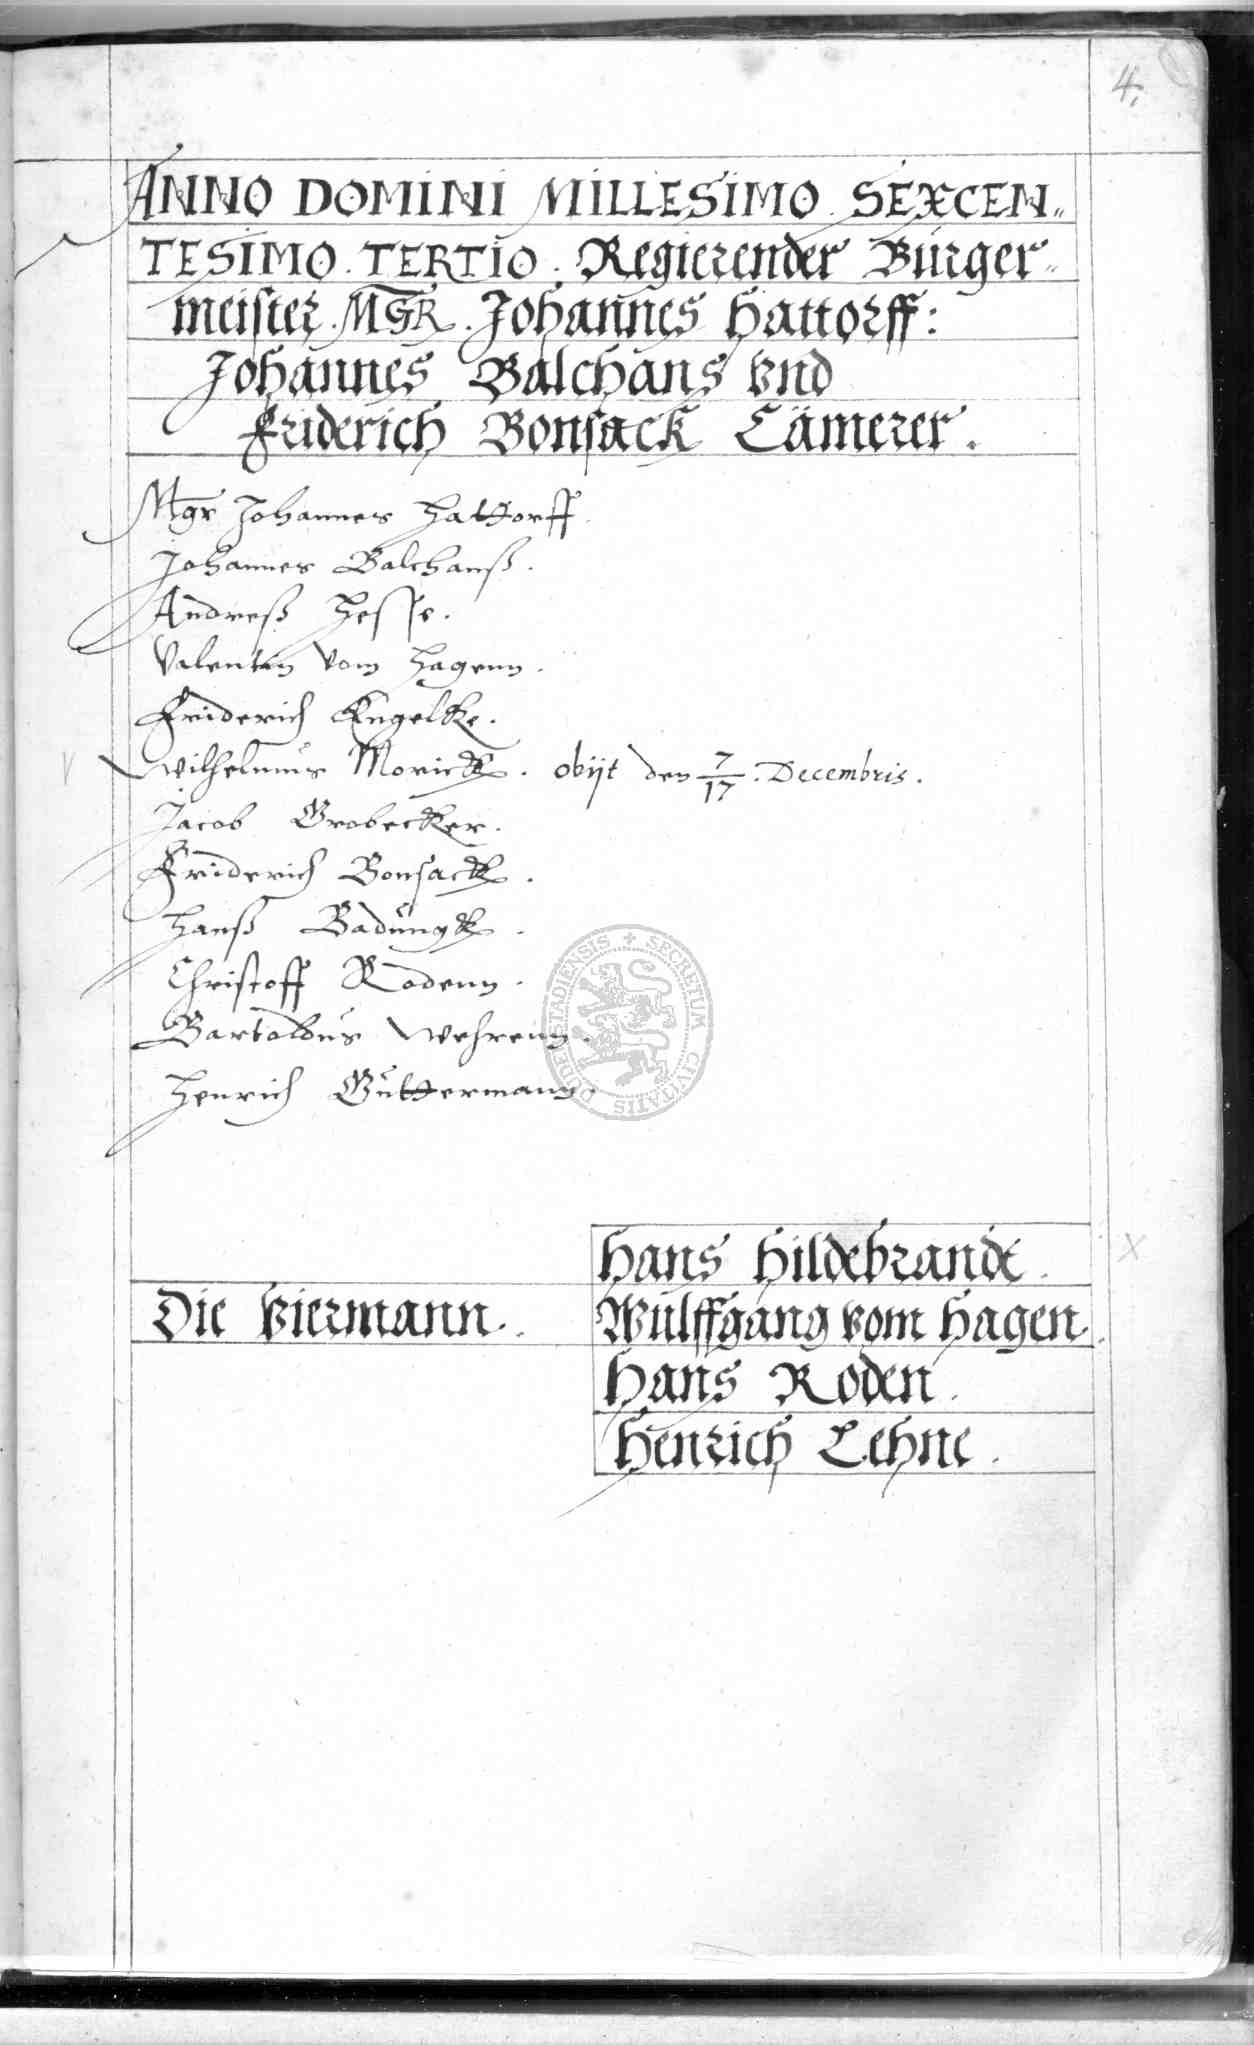 4.
ANNO DOMINI MILLESIMO SEXCEN„
TESIMO. TERTIO. Regierender Burger„
meister. MGR. Johannes Hattorff:
Johannes Balchans vnd
Friderich Bonsack Cämerer.
Mgr Johannes Hattorff.
Johannes Balchanß.
Andreß Hesse.
Valentin vom Hagenn.
Friderich Engelke.
V Wilhelmus Morick. obijt den 7/17. Decembris.
Jacob Grobecker.
Friderich Bonsack.
Hanß Badungk.
Christoff Rodenn.
Bartoldus Wehrenn.
Henrich Guttermann.
SECRETUM CIVITATIS DUDERSTADIENSIS
Hans Hildebrandt. X
Die Viermann. Wulffgang vom Hagen.
Hans Roden.
Henrich Lehne.